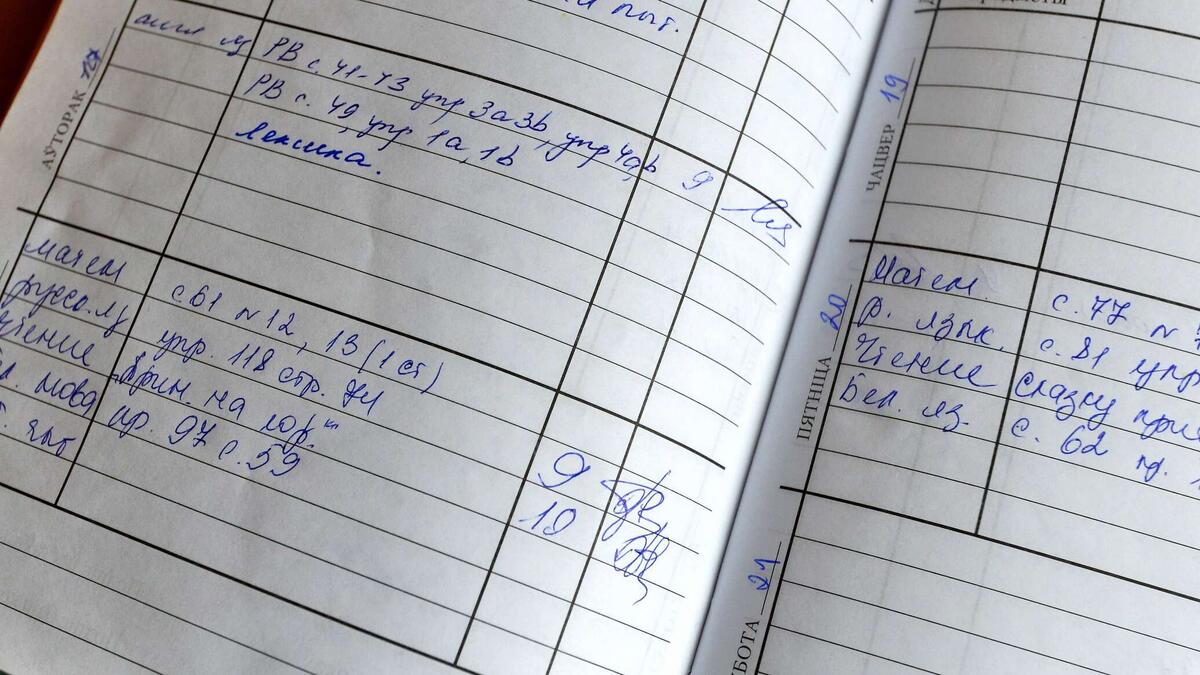 пыт.
АЎТОРАК 17
англ яз РВ с. 41-43 упр 3а 3b, упр 4а,b 9
РВ с. 49, упр 1а, 1b
лексика.
матем с 61 № 12, 13 (1 ст)
русс. яз упр. 118 стр. 74
чтение "Прин. на гор." 9
мова пр. 97 с. 59 10
ЧАЦВЕР 19
ПЯТНІЦА 20
Матем. с. 77 №
Р. язык. с. 81 упр
Чтение сказку
Бел. яз. с. 62
БОТА 21